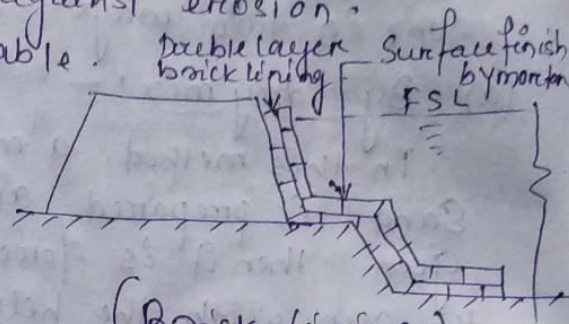 against erosion.
able.
Double layer
brick lining
Surface finish
by mortar
FSL
(Brick lining)